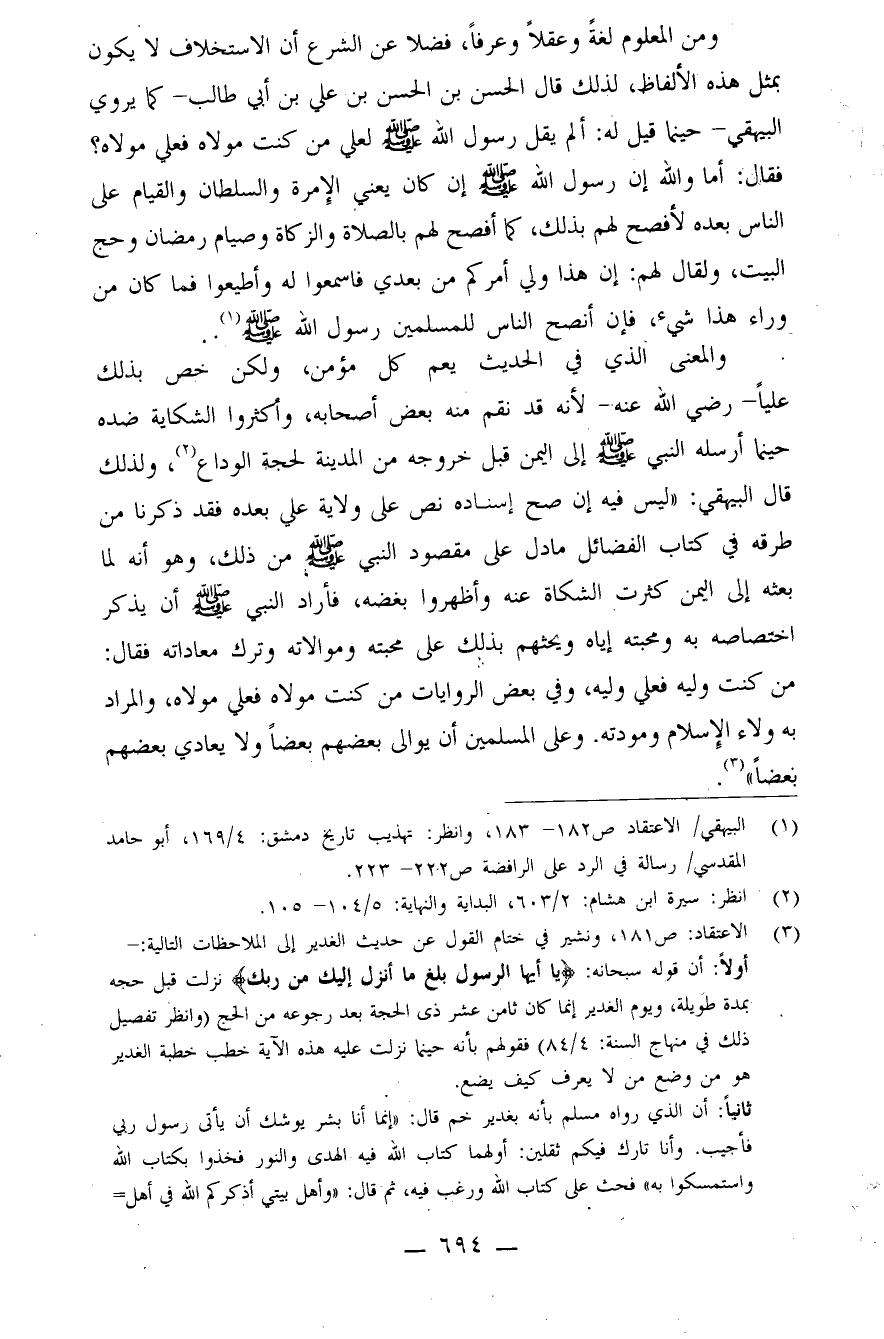 ومن المعلوم لغةً وعقلاً وعرفاً، فضلا عن الشرع أن الاستخلاف لا يكون
بمثل هذه الألفاظ، لذلك قال الحسن بن الحسن بن علي بن أبي طالب– كما يروي
البيهقي– حينما قيل له: ألم يقل رسول الله ﷺ لعلي من كنت مولاه فعلي مولاه؟
فقال: أما والله إن رسول الله ﷺ إن كان يعني الإمرة والسلطان والقيام على
الناس بعده لأفصح لهم بذلك، كما أفصح لهم بالصلاة والزكاة وصيام رمضان وحج
البيت، ولقال لهم: إن هذا ولي أمركم من بعدي فاسمعوا له وأطيعوا فما كان من
وراء هذا شيء، فإن أنصح الناس للمسلمين رسول الله ﷺ(١)..
والمعنى الذي في الحديث يعم كل مؤمن، ولكن خص بذلك
علياً– رضي الله عنه– لأنه قد نقم منه بعض أصحابه، وأكثروا الشكاية ضده
حينما أرسله النبي ﷺ إلى اليمن قبل خروجه من المدينة لحجة الوداع(٢)، ولذلك
قال البيهقي: «ليس فيه إن صح إسناده نص على ولاية علي بعده فقد ذكرنا من
طرقه في كتاب الفضائل مادل على مقصود النبي ﷺ من ذلك، وهو أنه لما
بعثه إلى اليمن كثرت الشكاة عنه وأظهروا بغضه، فأراد النبي ﷺ أن يذكر
اختصاصه به ومحبته إياه ويحثهم بذلك على محبته وموالاته وترك معاداته فقال:
من كنت وليه فعلي وليه، وفي بعض الروايات من كنت مولاه فعلي مولاه، والمراد
به ولاء الإسلام ومودته. وعلى المسلمين أن يوالى بعضهم بعضاً ولا يعادي بعضهم
بعضاً»(٣).
(١) البيهقي/ الاعتقاد ص١٨٢– ١٨٣، وانظر: تهذيب تاريخ دمشق: ١٦٩/٤، أبو حامد
المقدسي/ رسالة في الرد على الرافضة ص٢٢٢– ٢٢٣.
(٢) انظر: سيرة ابن هشام: ٦٠٣/٢، البداية والنهاية: ١٠٤/٥– ١٠٥.
(٣) الاعتقاد: ص١٨١، ونشير في ختام القول عن حديث الغدير إلى الملاحظات التالية:–
أولاً: أن قوله سبحانه: ﴿يا أيها الرسول بلغ ما أنزل إليك من ربك﴾ نزلت قبل حجه
بمدة طويلة، ويوم الغدير إنما كان ثامن عشر ذى الحجة بعد رجوعه من الحج (وانظر تفصيل
ذلك في منهاج السنة: ٨٤/٤) فقولهم بأنه حينما نزلت عليه هذه الآية خطب خطبة الغدير
هو من وضع من لا يعرف كيف يضع.
ثانياً: أن الذي رواه مسلم بأنه بغدير خم قال: «إنما أنا بشر يوشك أن يأتى رسول ربي
فأجيب. وأنا تارك فيكم ثقلين: أولهما كتاب الله فيه الهدى والنور فخذوا بكتاب الله
واستمسكوا به» فحث على كتاب الله ورغب فيه، ثم قال: «وأهل بيتي أذكركم الله في أهل=
— ٦٩٤ —